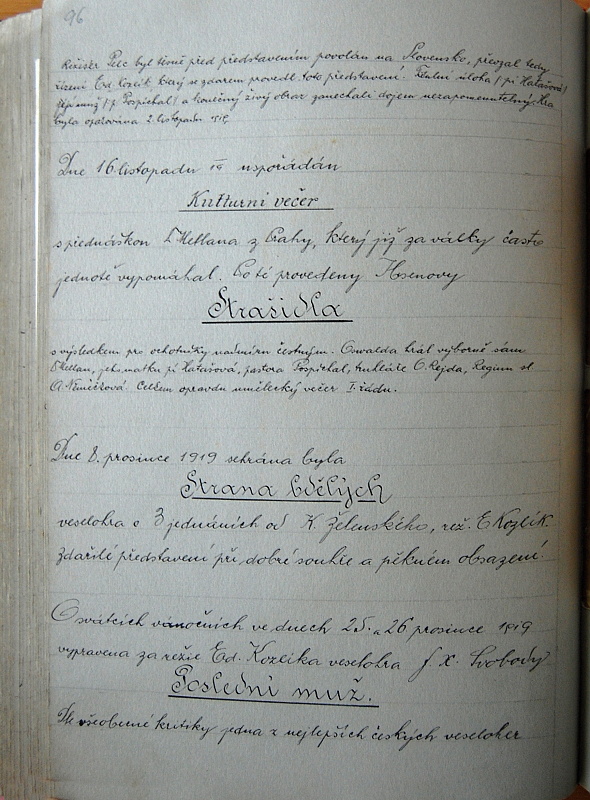 96
Režisér Pelc byl těsně před představením povolán na Slovensko, převzal tedy
řízení Ed. Kozlík, který se zdarem provedl toto představení. Titulní úloha /pí Hatašová/
/p. Pospíchal/ a konečný živý obraz zanechali dojem nezapomenutelný. Hra
byla opakována 2. listopadu 1919
Dne 16. listopadu 19 uspořádán
Kulturní večer
s přednáškou Mellana z Prahy, který již za války často
jednotě vypomáhal. Poté provedeny Ibsenovy
Strašidla
s výsledkem pro ochotníky nadmíru čestným. Oswalda hrál výborně sám
Mellan, jeho matku pí Hatašová, pastora Pospíchal, truhláře O. Rejda, Reginu sl.
A. Němičková. Celkem opravdu umělecký večer I. řádu.
Dne 8. prosince 1919 sehrána byla
Strana bdělých
veselohra o 3 jednáních od K. Želenského, rež. E Kozlík.
Zdařilé představení při dobré souhře a pěkném obsazení.
O svátcích vánočních ve dnech 25. a 26 prosince 1919
vypravena za režie Ed. Kozlíka veselohra F. X. Svobody
Poslední muž.
Dle všeobecné kritiky jedna z nejlepších českých veseloher